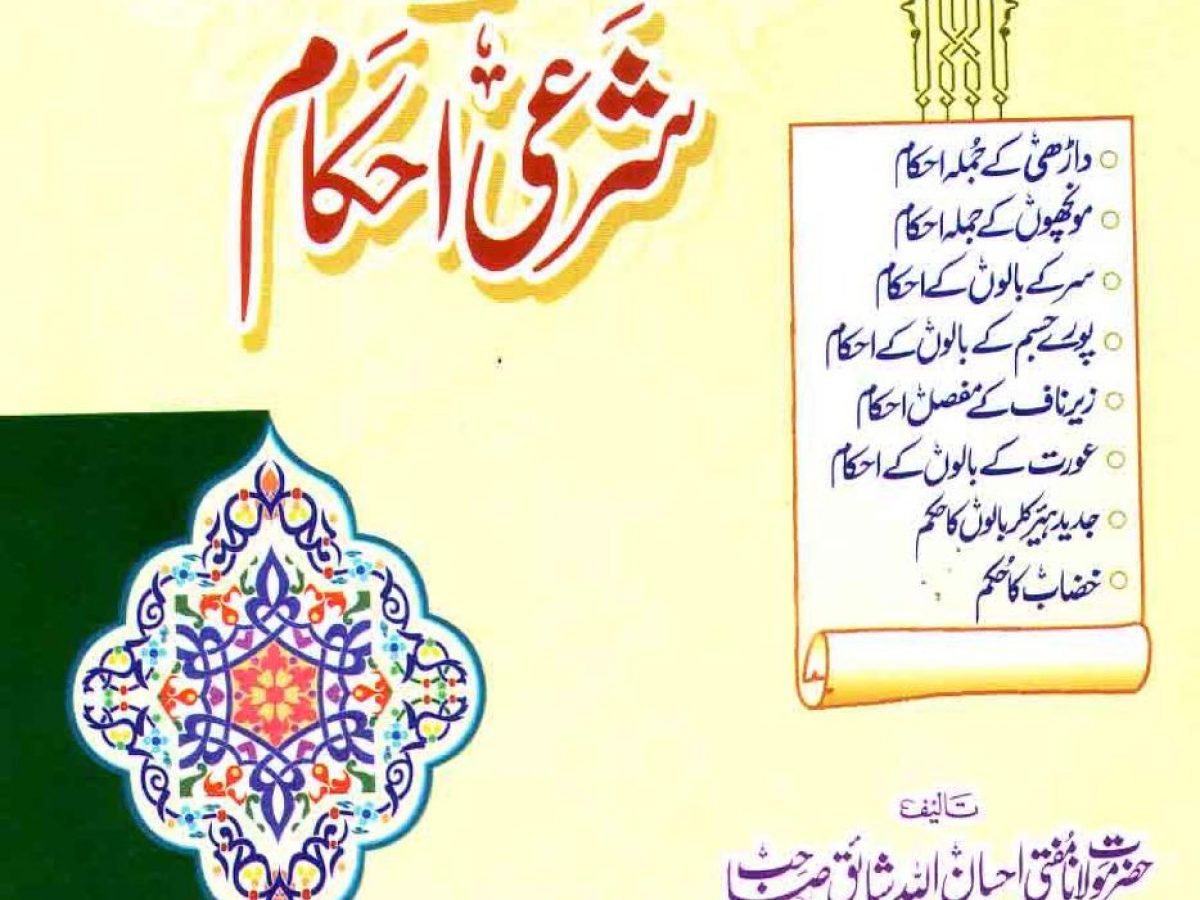 شرعی احکام
داڑھی کے جُملہ احکام
مونچھوں کے جملہ احکام
سر کے بالوں کے احکام
پورے جسم کے بالوں کے احکام
زیر ناف کے مفصل احکام
عورت کے بالوں کے احکام
جدید ہیئر کلر بالوں کا حکم
خضاب کا حُکم
تالیف
حضرت مولانا مُفتی احسان اللہ شائق صاحب